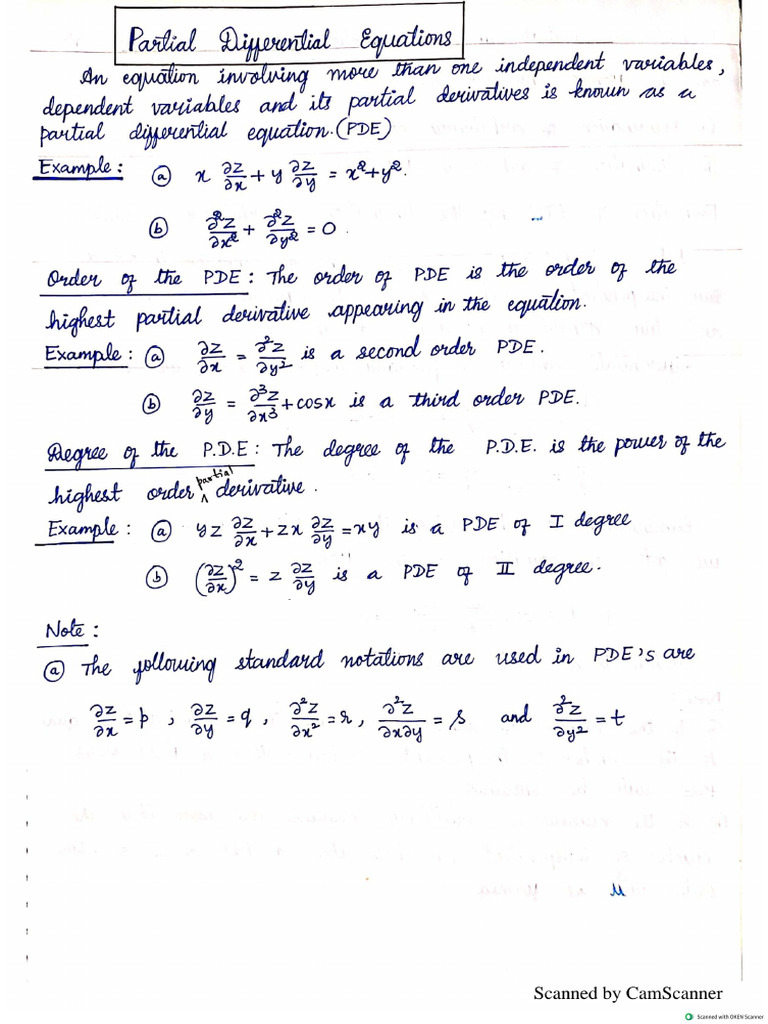 Partial Differential Equations
An equation involving more than one independent variables,
dependent variables and its partial derivatives is known as a
partial differential equation.(PDE)
Example : ⓐ x ∂z/∂x + y ∂z/∂y = x²+y².
ⓑ ∂²z/∂x² + ∂²z/∂y² = 0.
Order of the PDE : The order of PDE is the order of the
highest partial derivative appearing in the equation.
Example : ⓐ ∂z/∂x = ∂²z/∂y² is a second order PDE.
ⓑ ∂z/∂y = ∂³z/∂x³ + cosx is a third order PDE.
Degree of the P.D.E : The degree of the P.D.E. is the power of the
highest order partial derivative.
Example : ⓐ yz ∂z/∂x + zx ∂z/∂y = xy is a PDE of I degree
ⓑ (∂z/∂x)² = z ∂z/∂y is a PDE of II degree.
Note :
ⓐ The following standard notations are used in PDE's are
∂z/∂x = p , ∂z/∂y = q , ∂²z/∂x² = r, ∂²z/∂x∂y = s and ∂²z/∂y² = t
Scanned by CamScanner
Scanned with OKEN Scanner